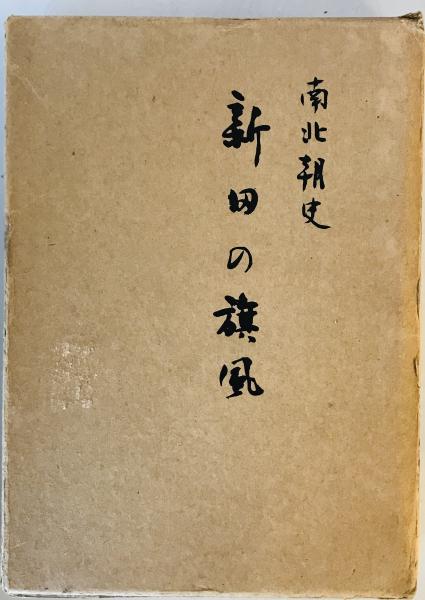 南北朝史
新田の旗風